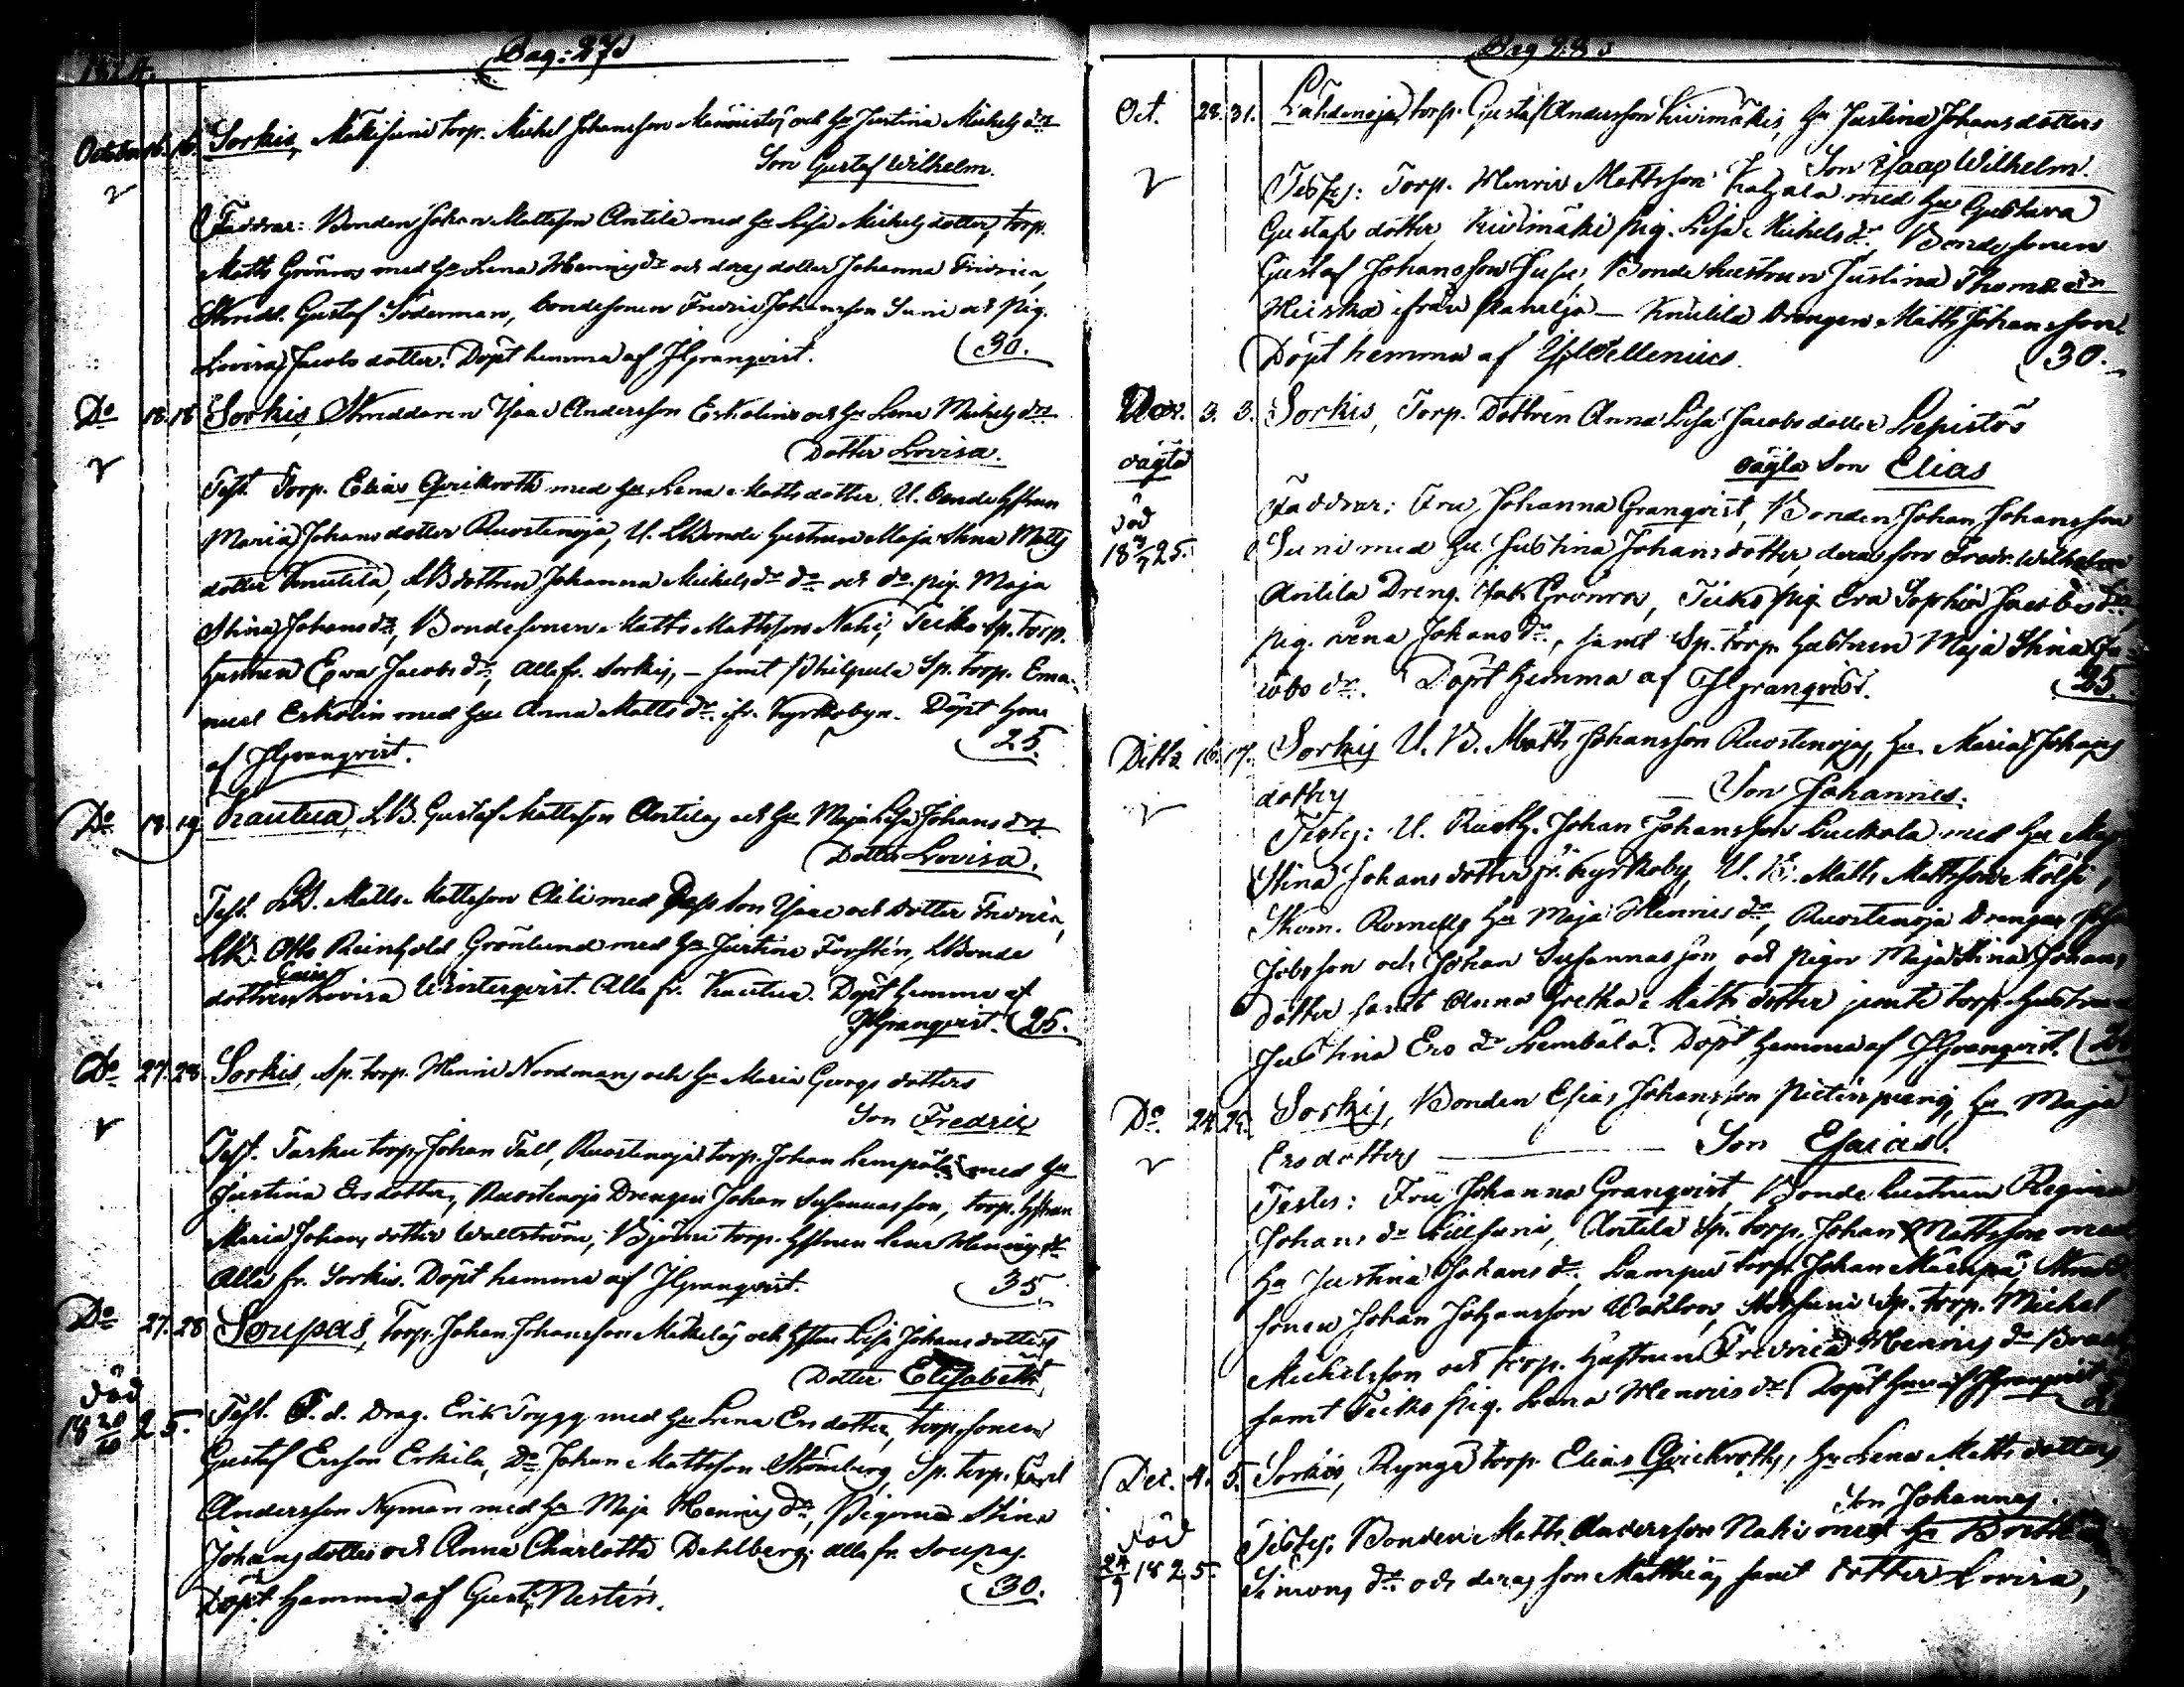 Pag: 27
October 16. 16. Sorkis, Mäkisuni torp. Michel Johansson Männistös och Hu Justina Michelsdrs
Son Gustaf Wilhelm.
Faddrar: Bonden Johan Mattsson Antila med Hu Lisa Michelsdotter, torp.
Matts Grönros med Hu Lena Henricsdr och deras dotter Johanna Fridrica,
Skrädd. Gustaf Söderman, bondesonen Fredric Johansson Suni och pig.
Lovisa Jacobsdotter. Döpt hemma af JGranqvist. 30.
Do 18. 18 Sorkis, Skreddaren Isaac Andersson Erkolins och Hu Lena Michelsdrs
Dotter Lovisa.
Test. Torp. Elias Qvickroth med Hu Lena Mattsdotter, U. Bondehstrun
Maria Johansdotter Ruostenoja, U. LBonde hustrun Maja Stina Matts
dotter Knutila, LBdottren Johanna Michelsdr do och do pig. Maja
Stina Johansdr, Bondesonen Matts Mattsson Nahi, Teiko Sp. torp.
hustrun Ewa Jacobsdr, alla fr. Sorkis, – samt Philpula Sp. torp. Ema-
nuel Erkolin med Hu Anna Mattsdr ifr. Kyrkobyn. Döpt hema
af JGranqvist. 25.
Do 18. 19. Kautua, LB. Gustaf Mattsson Antilas och Hu Maja Lisa Johansdrs
Dotter Lovisa.
Test. LB. Matts Mattsson Eili med dess son Isaac och dotter Fredrica,
LB. Otto Reinhold Grönlund med Hu Justina Forstén, LBonde
dottren Lovisa Winterqvist. Alla fr. Kautua. Döpt hemma af
JGranqvist. 25.
Do 27. 28. Sorkis, Sp. torp. Henric Nordmans och Hu Maria Georgsdotters
Son Fredric
Test. Tasku torp. Johan Tall, Ruostenoja torp. Johan Lempälä med Hu
Justina Ersdotter, Ruostenoja Drengen Johan Susannasson, torp. hstrun
Maria Johansdotter Wallström, Björni torp. hstrun Lena Henricsdr
Alla fr. Sorkis. Döpt hemma af JGranqvist. 35.
Do 27. 28 Soupas, Torp. Johan Johansson Mäkeläs och hstru Lisa Johansdotters
Dotter Elisabeth
död
18 20/10 25. Test. F. d. Drag. Erik Trygg med Hu Lena Ersdotter, torp. sonen
Gustaf Ersson Erkila, Do Johan Mattsson Strömberg, Sp. torp. Carl
Andersson Nyman med Hu Maja Henricsdr, Pigorna Stina
Johansdotter och Anna Charlotta Dahlberg, alla fr. Soupas.
Döpt hemma af Gust. Nestén. 30.
Pag 28
Oct. 28. 31. Lähdenoja torp. Gustaf Andersson Kivimäkis, Hu Justina Johansdotters
Son Isaac Wilhelm.
Testes: Torp. Henric Mattsson Katala med Hu Gustava
Gustafsdotter, Kivimäki pig. Lisa Michelsdr, Bondesonen
Gustaf Johansson Juse, Bonde hustrun Justina Thomædr
Heiska ifrån Panelja – Knutila Drengen Matts Johansson.
Döpt hemma af Mellenius. 30.
Nov. 3. 3. Sorkis, Torp. Dottren Anna Lisa Jacobsdotter Lepistös
oägta oägta Son Elias
död
18 3/7 25. Faddrar: Fru Johanna Granqvist, Bonden Johan Johansson
Suni med Hu Justina Johansdotter, deras son Fredr. Wilhelm
Antila Dreng. Isak Grönros, Teiko pig. Eva Sophia Jacobsdr,
pig. Lena Johansdr, samt Sp. torp. hustrun Maja Stina Ja-
cobsdr. Döpt hemma af JGranqvist. 25.
Ditto 16. 17. Sorkis U. B. Matts Johansson Ruostenojas, Hu Maria Johans
dotters Son Johannes.
Testes: U. Rusth. Johan Johansson Luckola med Hu Maja
Stina Johansdotter fr. Kyrkoby, U. B. Matts Mattsson Kölfi,
Skom. Romells Hu Maja Henricsdr, Ruostenoja Drengar
Jobsson och Johan Susannasson, och pigor Maja Stina Johans
dotter samt Anna Gretha Mattsdotter jemte torp. hustrun
Justina Ersdr Lembälä. Döpt hemma af JGranqvist.
Do. 24. 25. Sorkis, Bonden Esaias Johansson Pietinpungs, Hu Maja
Ersdotters Son Esaias.
Testes: Fru Johanna Granqvist, Bonde hustrun Regina
Johansdr Lillsuni, Antila Sp. torp. Johan Mattsson med
Hu Justina Johansdr, Lampu torp. Johan Mäenpä,
sonen Johan Johansson Wahlros, Sp. torp. Michel
Michelsson och torp. hustrun Fredrica Henricsdr
samt Teiko pig. Lena Henricsdr. Döpt hema af JGranqvist
Dec. 4. 5. Sorkis, Rynge torp. Elias Qvickroths, Hu Lena Mattsdotters
Son Johannes.
död
24/9 1825. Testes: Bonden Matts Andersson Nahi med Hu
Simonsdr och deras son Matthias samt dotter Lovisa,